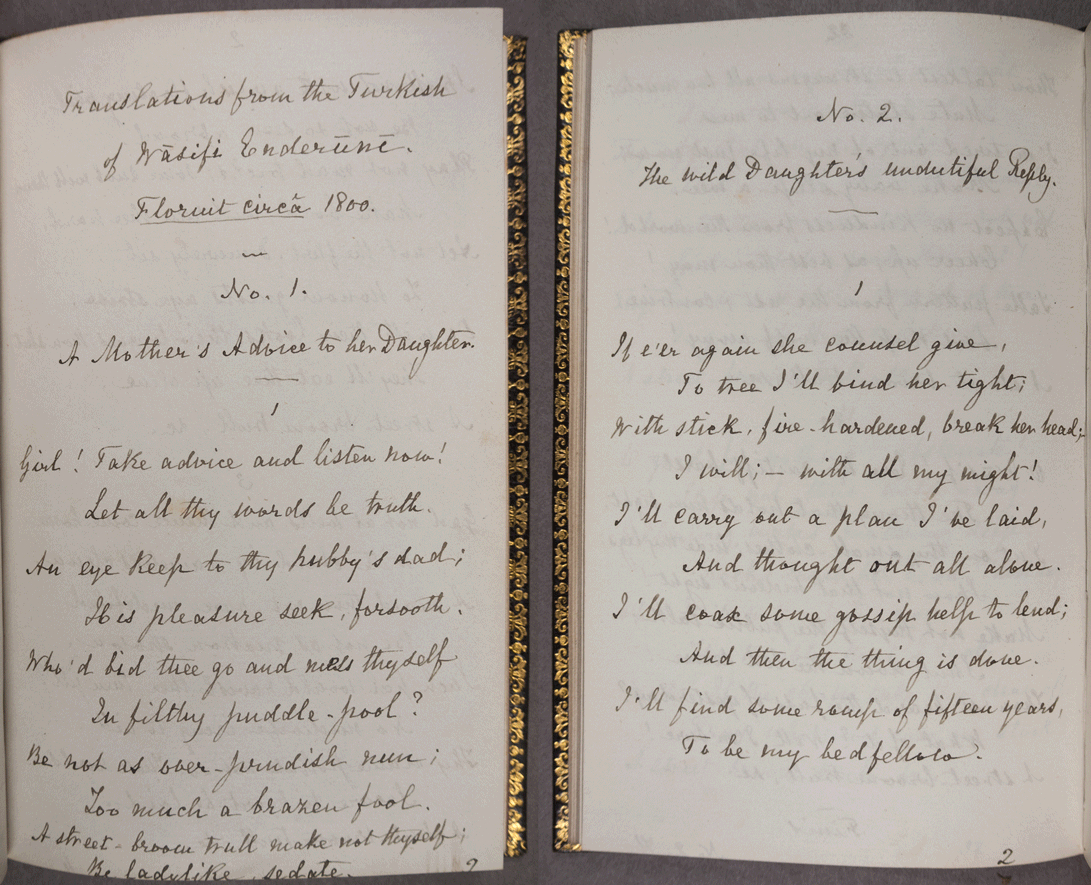 Translations from the Turkish
of Wāsifi Enderūnī.
Floruit circā 1800.
No. 1.
A Mother's Advice to her Daughter.
1
Girl! Take advice and listen now!
Let all thy words be truth.
An eye keep to thy hubby's dad;
His pleasure seek, forsooth.
Who'd bid thee go and mess thyself
In filthy puddle-pool?
Be not as over-prudish nun;
Too much a brazen fool.
A street-broom trull make not thyself;
Be ladylike, sedate.
2
No. 2.
The wild Daughter's undutiful Reply.
1
If e'er again she counsel give,
To tree I'll bind her tight;
With stick, fire-hardened, break her head;
I will; – with all my might!
I'll carry out a plan I've laid,
And thought out all alone.
I'll coax some gossip help to lend;
And then the thing is done.
I'll find some romp of fifteen years,
To be my bedfellow.
2